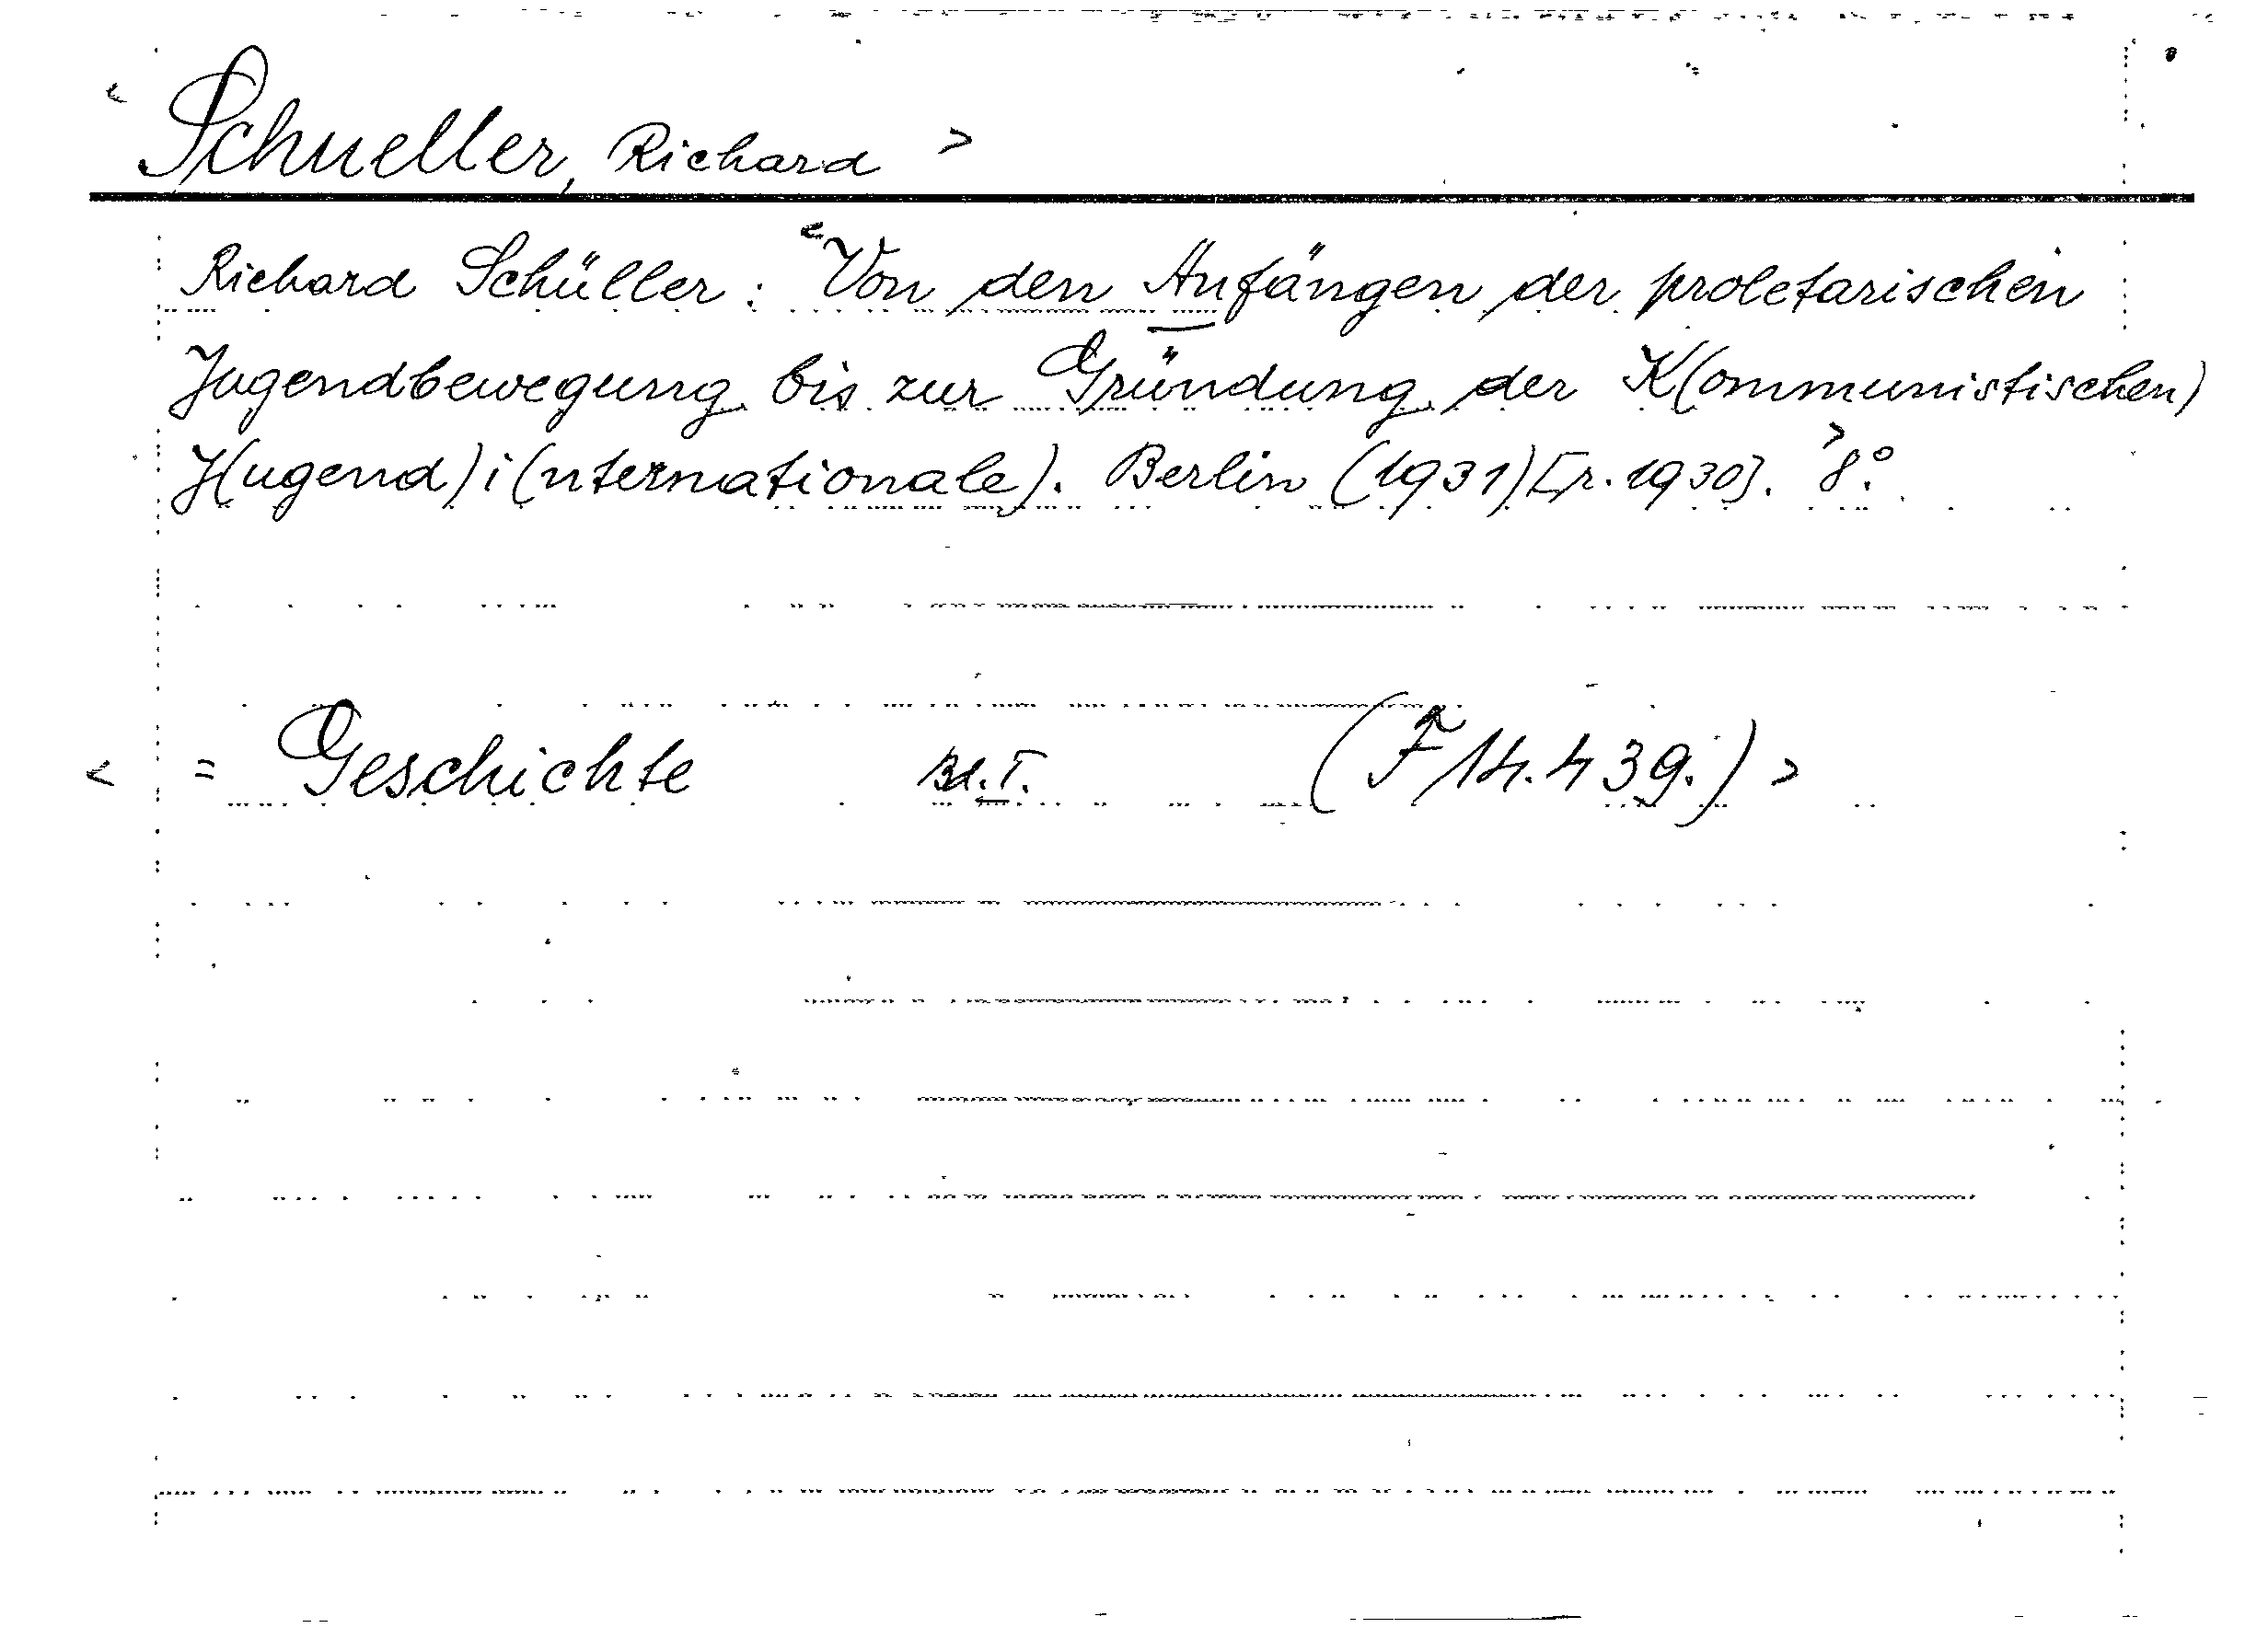 < Schueller, Richard >
Richard Schüller: <Von den Anfängen der proletarischen
Jugendbewegung bis zur Gründung der K(ommunistischen)
J(ugend)i(nternationale). Berlin (1931)[r. 1930]. > 8°.
< = Geschichte Bd. I. (F 14.439.) >